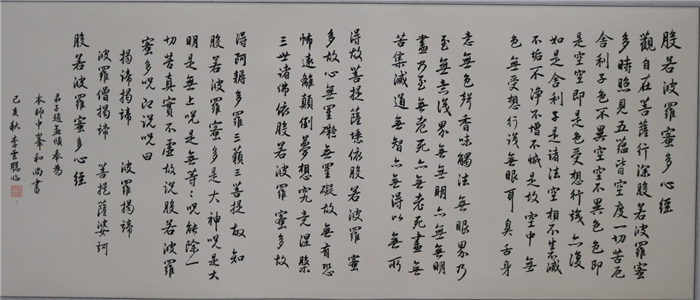 般若波羅蜜多心經
觀自在菩薩行深般若波羅蜜
多時照見五蘊皆空度一切苦厄
舍利子色不異空空不異色色即
是空空即是色受想行識亦復
如是舍利子是諸法空相不生不滅
不垢不淨不增不減是故空中無
色無受想行識無眼耳鼻舌身
意無色聲香味觸法無眼界乃
至無意識界無無明亦無無明
盡乃至無老死亦無老死盡無
苦集滅道無智亦無得以無所
得故菩提薩埵依般若波羅蜜
多故心無罣礙無罣礙故無有恐
怖遠離顛倒夢想究竟涅槃
三世諸佛依般若波羅蜜多故
得阿耨多羅三藐三菩提故知
般若波羅蜜多是大神呪是大
明呪是無上呪是無等等呪能除一
切苦真實不虛故說般若波羅
蜜多呪即說呪曰
揭諦揭諦 波羅揭諦
波羅僧揭諦 菩提薩婆訶
般若波羅蜜多心經
弟子趙孟頫奉為
本師中峯和尚書
己亥秋李雲